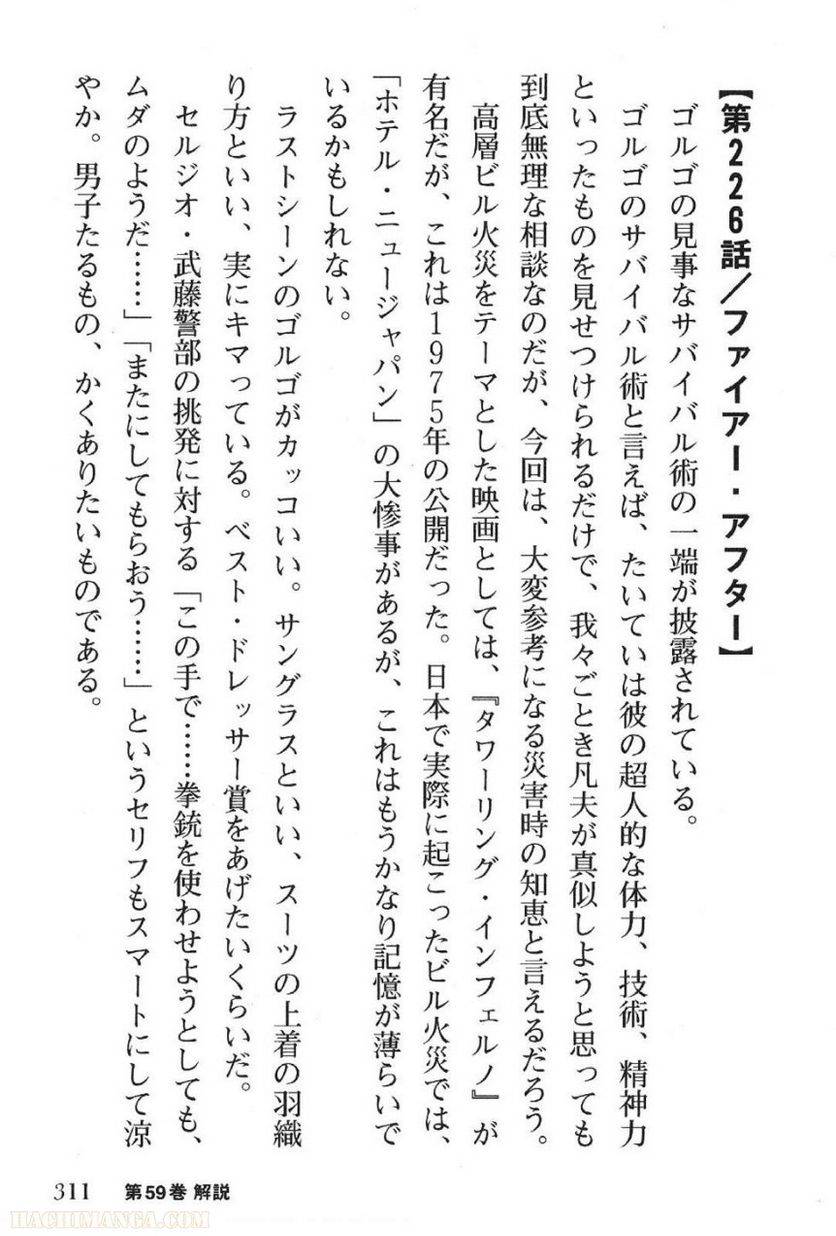 【第226話／ファイアー・アフター】
ゴルゴの見事なサバイバル術の一端が披露されている。
ゴルゴのサバイバル術と言えば、たいていは彼の超人的な体力、技術、精神力
といったものを見せつけられるだけで、我々ごとき凡夫が真似しようと思っても
到底無理な相談なのだが、今回は、大変参考になる災害時の知恵と言えるだろう。
高層ビル火災をテーマとした映画としては、『タワーリング・インフェルノ』が
有名だが、これは1975年の公開だった。日本で実際に起こったビル火災では、
「ホテル・ニュージャパン」の大惨事があるが、これはもうかなり記憶が薄らいで
いるかもしれない。
ラストシーンのゴルゴがカッコいい。サングラスといい、スーツの上着の羽織
り方といい、実にキマっている。ベスト・ドレッサー賞をあげたいくらいだ。
セルジオ・武藤警部の挑発に対する「この手で……拳銃を使わせようとしても、
ムダのようだ……」「またにしてもらおう……」というセリフもスマートにして涼
やか。男子たるもの、かくありたいものである。
311 第59巻 解説
HACHIMANGA.COM